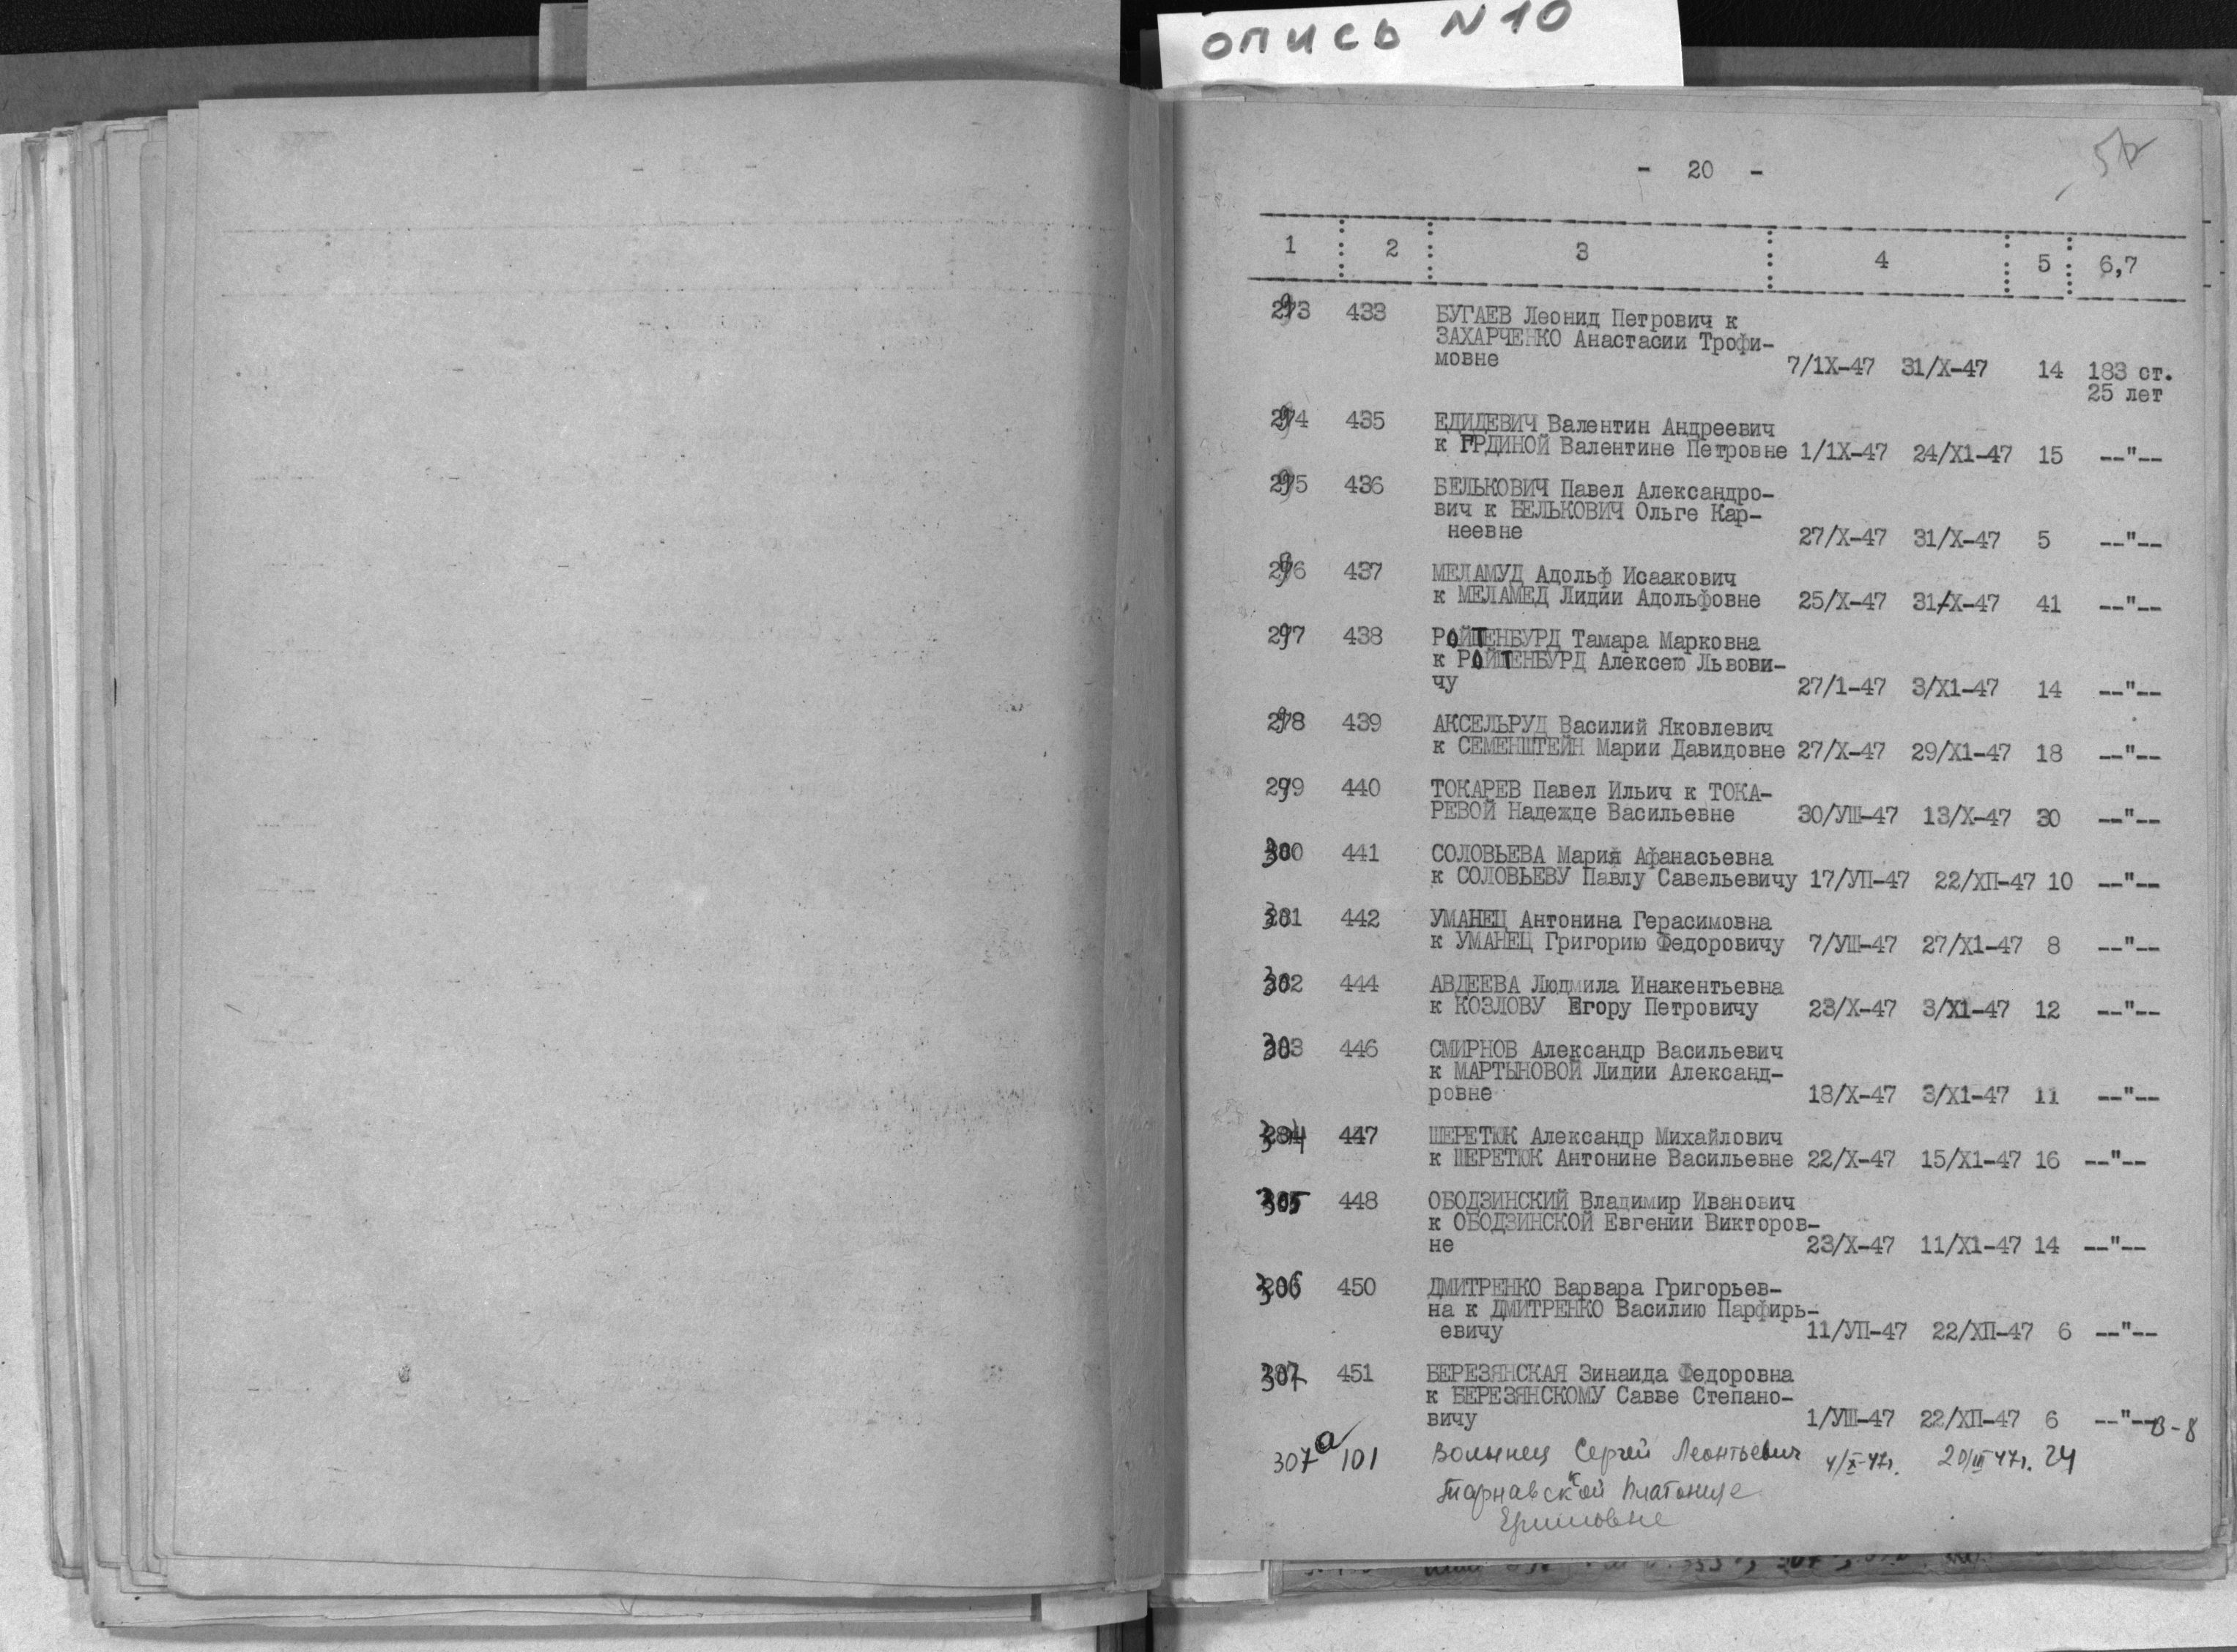 опись N 10
- 20 -
1 2 3 4 5 6,7
293 433 БУГАЕВ Леонид Петрович к
ЗАХАРЧЕНКО Анастасии Трофи-
мовне 7/1Х-47 31/Х-47 14 183 ст.
25 лет
294 435 ЕДИДЕВИЧ Валентин Андреевич
к ГРДИНОЙ Валентине Петровне 1/1Х-47 24/Х1-47 15 --"--
295 436 БЕЛЬКОВИЧ Павел Александро-
вич к БЕЛЬКОВИЧ Ольге Кар-
неевне 27/Х-47 31/Х-47 5 --"--
296 437 МЕЛАМУД Адольф Исаакович
к МЕЛАМЕД Лидии Адольфовне 25/Х-47 31/Х-47 41 --"--
297 438 РОЙТЕНБУРД Тамара Марковна
к РОЙТЕНБУРД Алексею Львови-
чу 27/1-47 3/Х1-47 14 --"--
298 439 АКСЕЛЬРУД Василий Яковлевич
к СЕМЕНШТЕЙН Марии Давидовне 27/Х-47 29/Х1-47 18 --"--
299 440 ТОКАРЕВ Павел Ильич к ТОКА-
РЕВОЙ Надежде Васильевне 30/УШ-47 13/Х-47 30 --"--
300 441 СОЛОВЬЕВА Мария Афанасьевна
к СОЛОВЬЕВУ Павлу Савельевичу 17/УП-47 22/ХП-47 10 --"--
301 442 УМАНЕЦ Антонина Герасимовна
к УМАНЕЦ Григорию Федоровичу 7/УШ-47 27/Х1-47 8 --"--
302 444 АВДЕЕВА Людмила Инакентьевна
к КОЗЛОВУ Егору Петровичу 23/Х-47 3/Х1-47 12 --"--
303 446 СМИРНОВ Александр Васильевич
к МАРТЫНОВОЙ Лидии Александ-
ровне 18/Х-47 3/Х1-47 11 --"--
304 447 ШЕРЕТЮК Александр Михайлович
к ШЕРЕТЮК Антонине Васильевне 22/Х-47 15/Х1-47 16 --"--
305 448 ОБОДЗИНСКИЙ Владимир Иванович
к ОБОДЗИНСКОЙ Евгении Викторов-
не 23/Х-47 11/Х1-47 14 --"--
306 450 ДМИТРЕНКО Варвара Григорьев-
на к ДМИТРЕНКО Василию Парфирь-
евичу 11/УП-47 22/ХП-47 6 --"--
307 451 БЕРЕЗЯНСКАЯ Зинаида Федоровна
к БЕРЕЗЯНСКОМУ Савве Степано-
вичу 1/УШ-47 22/ХП-47 6 --"-- В-8
307а 101 Волынец Сергей Леонтьевич 4/X-47г. 20/III 47г. 24
к Тарнавской Платониде